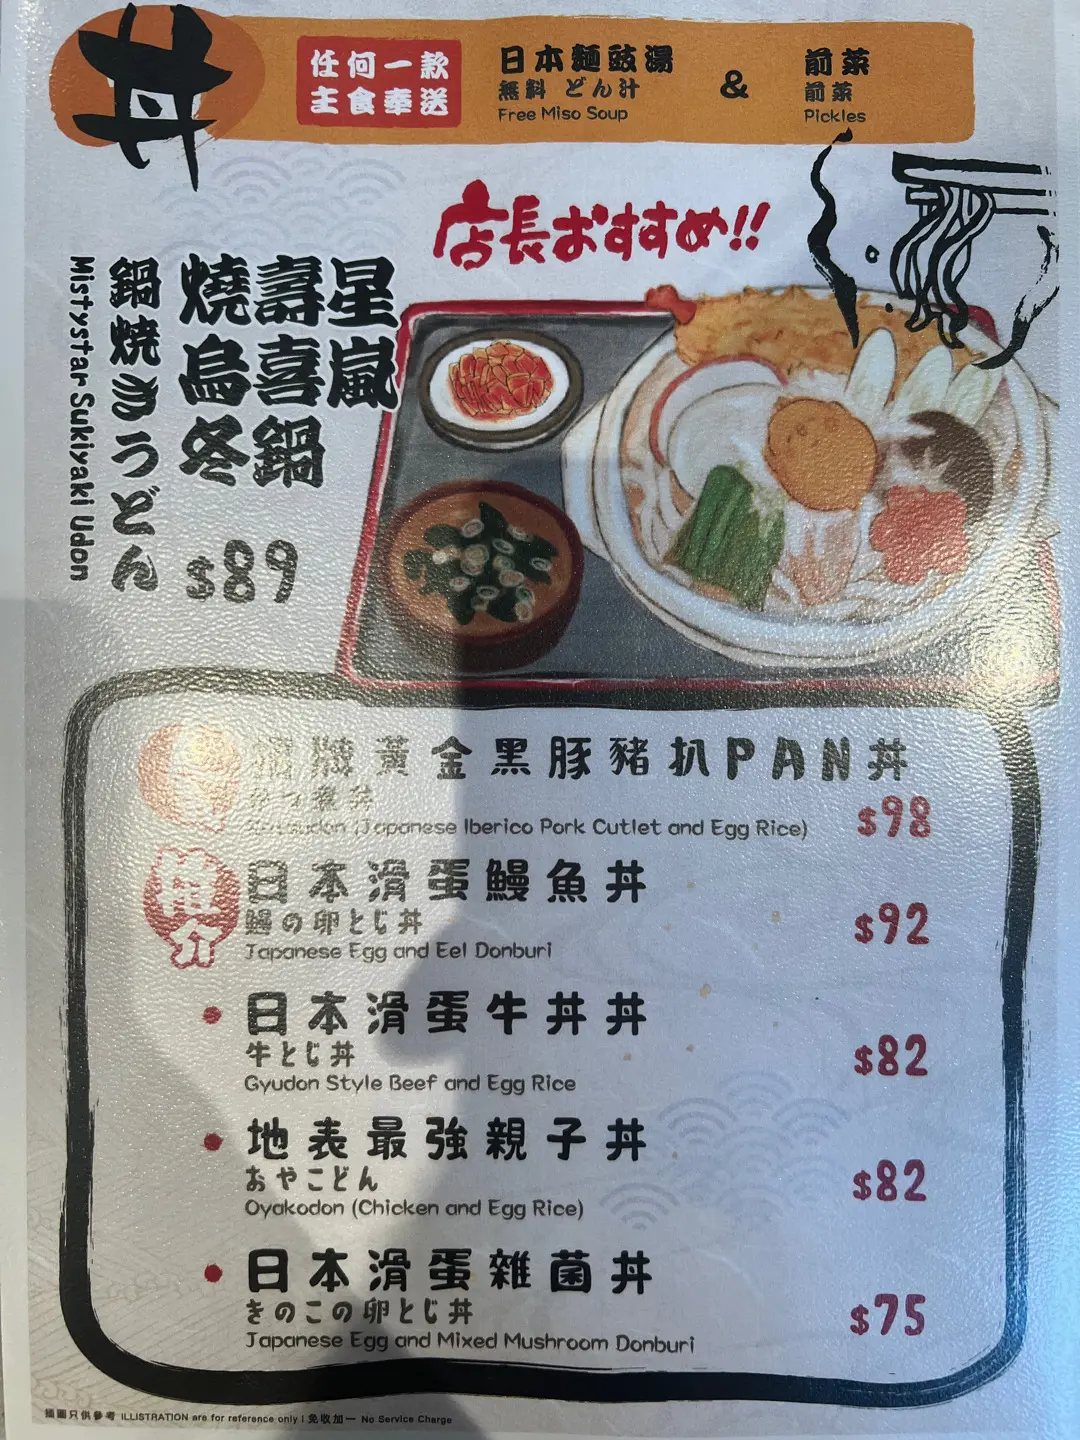 丼
任何一款
主食奉送
日本麵豉湯
無料 どん汁
Free Miso Soup
&
前菜
前菜
Pickles
店長おすすめ!!
星嵐
壽喜鍋
燒烏冬
鍋焼きうどん
Mistystar Sukiyaki Udon
$89
黃金黑豚豬扒PAN丼
かつ煮丼
Katsudon (Japanese Iberico Pork Cutlet and Egg Rice)
$98
日本滑蛋鰻魚丼
鰻の卵とじ丼
Japanese Egg and Eel Donburi
$92
日本滑蛋牛丼丼
牛とじ丼
Gyudon Style Beef and Egg Rice
$82
地表最強親子丼
おやこどん
Oyakodon (Chicken and Egg Rice)
$82
日本滑蛋雜菌丼
きのこの卵とじ丼
Japanese Egg and Mixed Mushroom Donburi
$75
插圖只供參考 ILLISTRATION are for reference only | 免收加一 No Service Charge